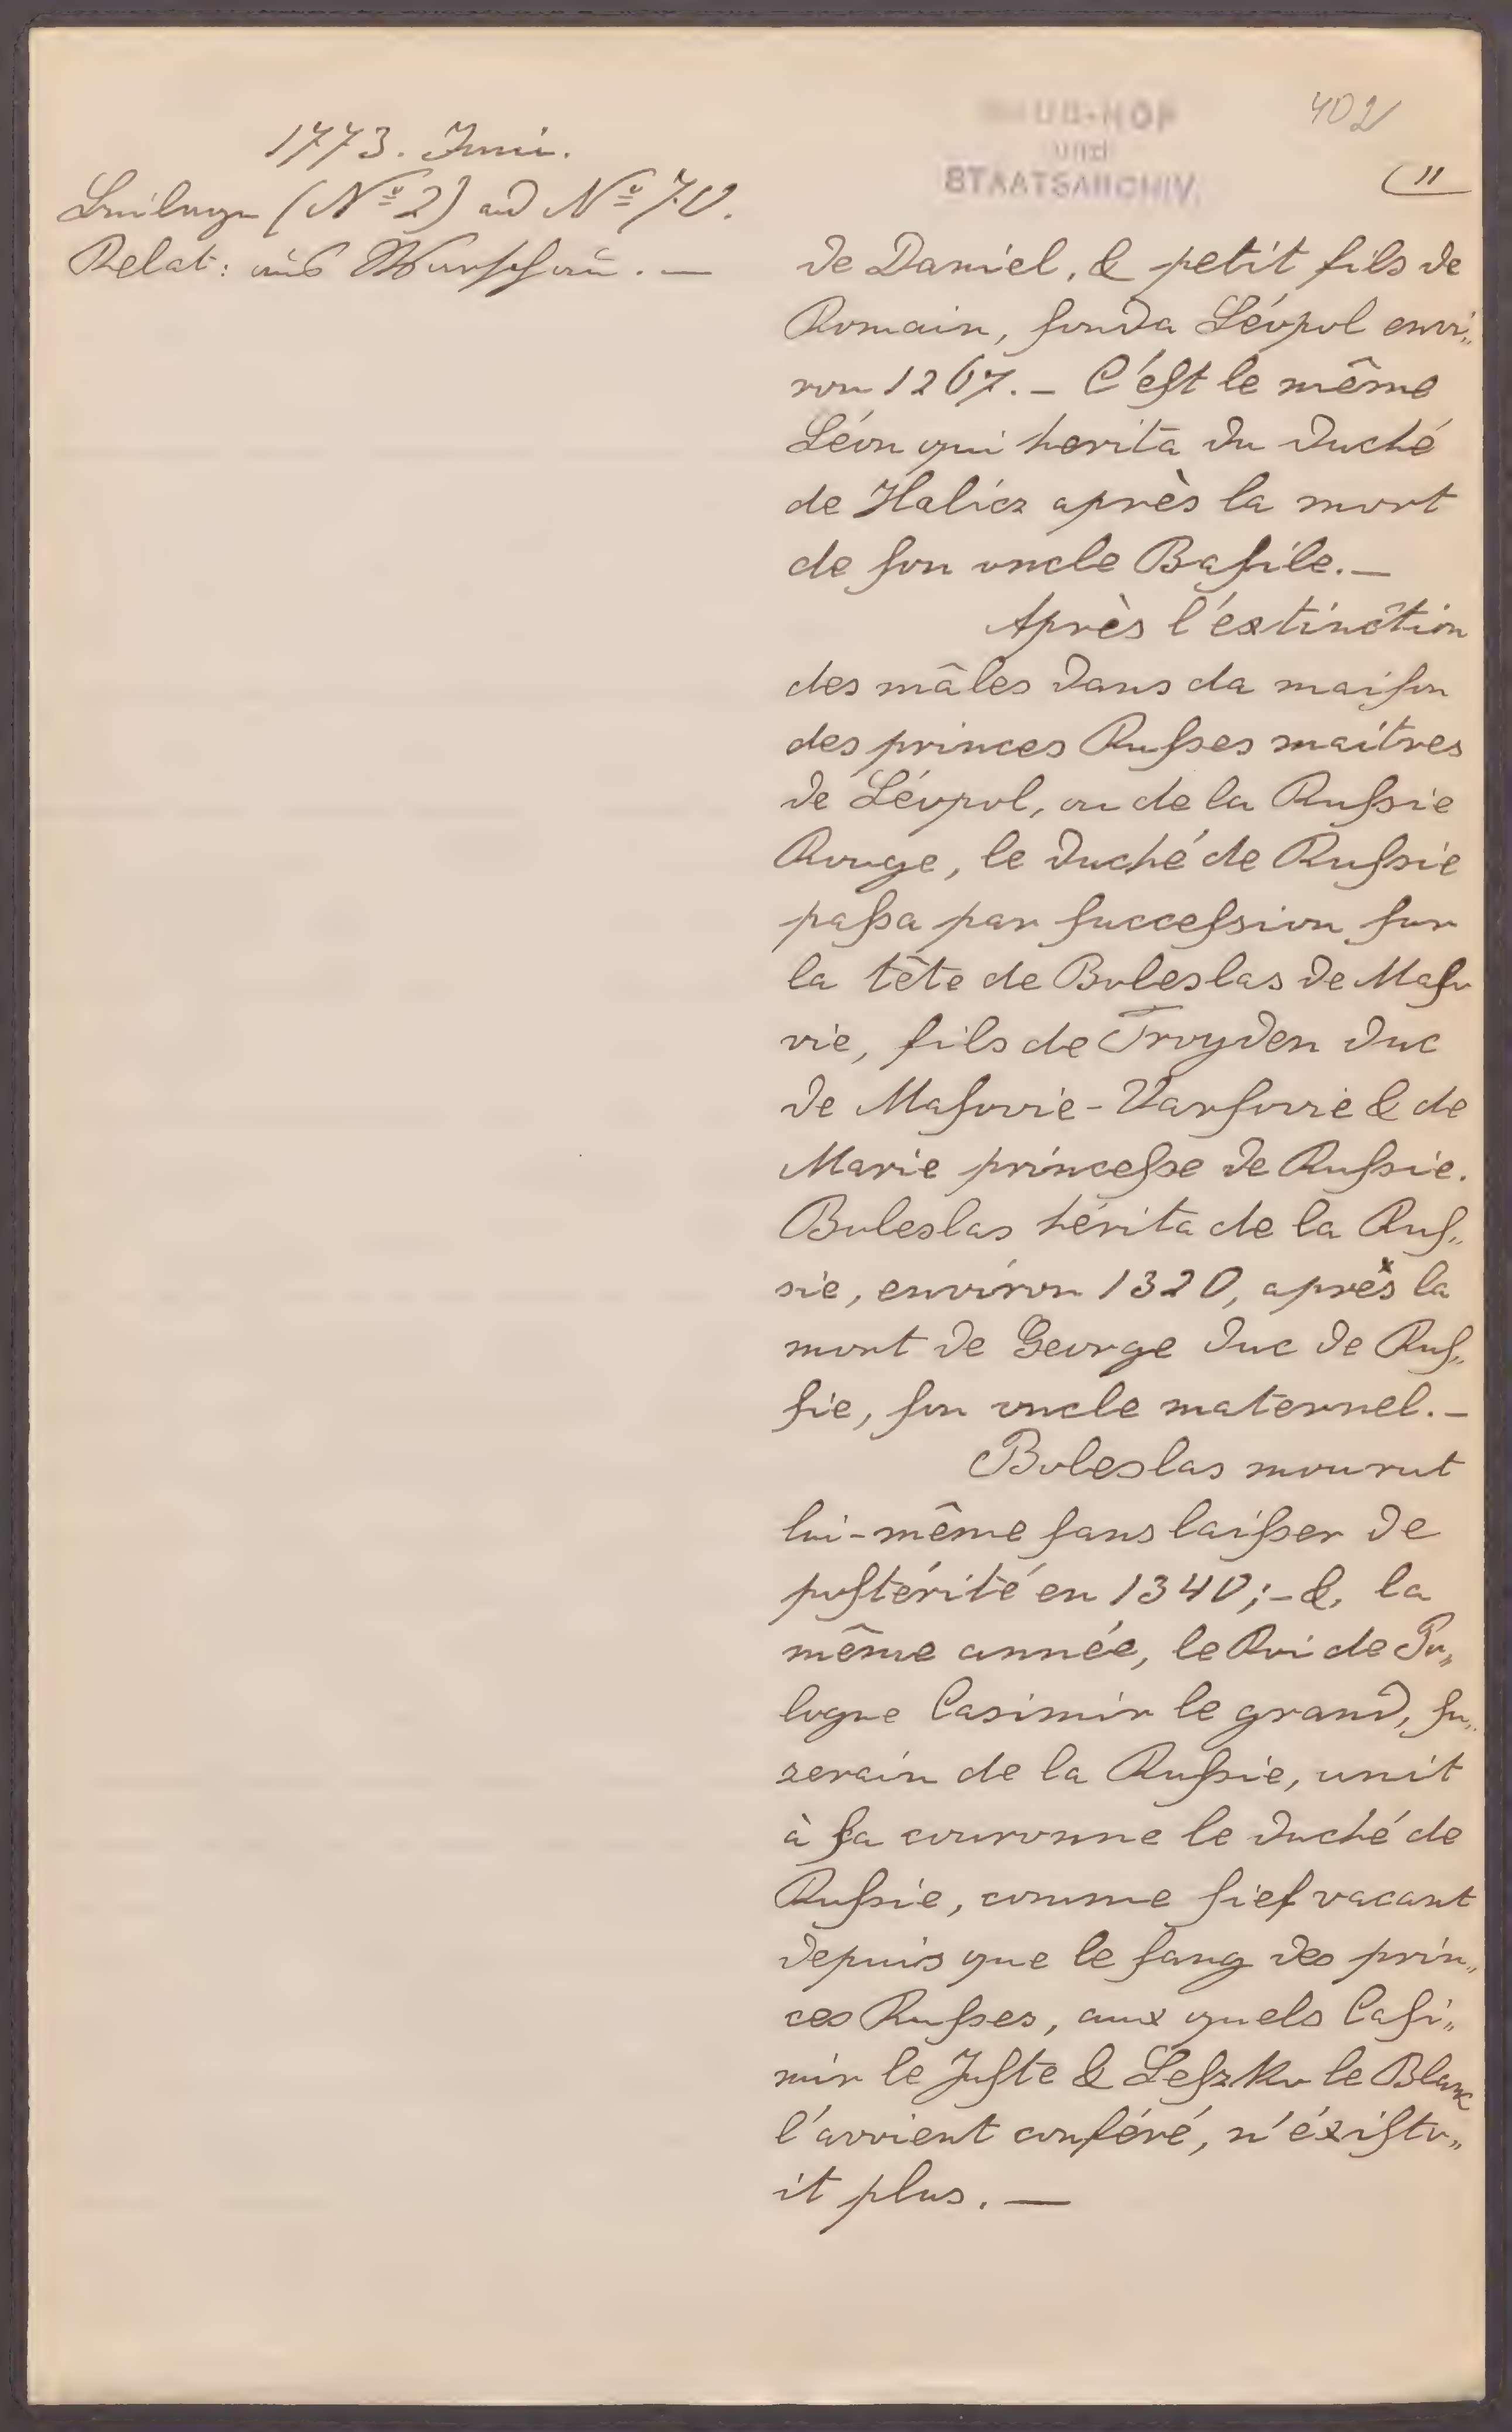 1773. Juni.
Beilage (Nº 2) ad Nº 70.
Relat: aus Warschau. —
HAUS-HOF
und
STAATSARCHIV.
402
11
de Daniel, & petit fils de
Romain, fonda Léopol envi„
ron 1267. – C'est le même
Léon qui herita du duché
de Halicz après la mort
de son oncle Basile. —
Après l'extinction
des mâles dans da maison
des princes Russes maitres
de Léopol, ou de la Russie
Rouge, le duché de Russie
passa par succession sur
la tête de Boleslas de Maso
vie, fils de Troyden duc
de Masovie-Varsovie & de
Marie princesse de Russie.
Boleslas hérita de la Rus„
sie, environ 1320, après la
mort de George duc de Rus„
sie, son oncle maternel. –
Boleslas mourut
lui-même sans laisser de
postérité en 1340; – &, la
même année, le Roi de Po„
logne Casimir le grand, su„
zerain de la Russie, unit
à sa couronne le duché de
Russie, comme fief vacant
depuis que le sang des prin„
ces Russes, aux quels Casi„
mir le Juste & Leszko le Blanc
l'avoient conféré, n'éxisto„
it plus. —